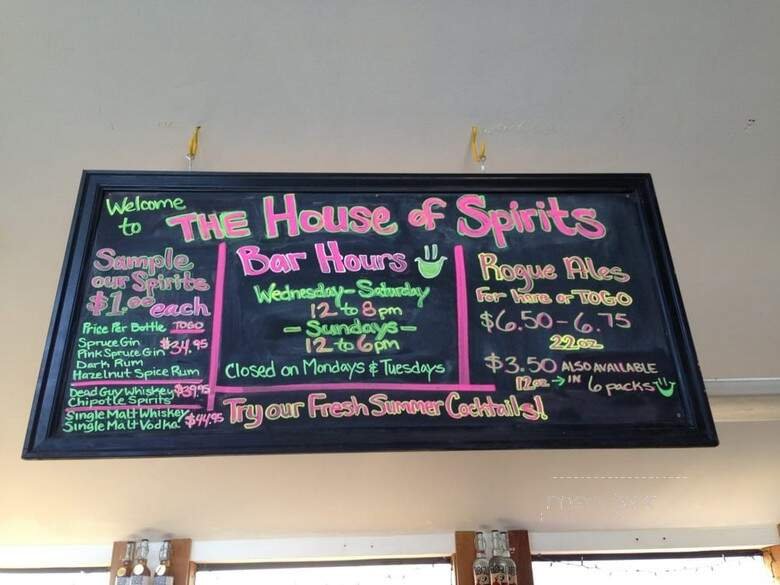 Welcome
to THE House of Spirits
Sample
our Spirits
$1.00 each
Price Per Bottle TOGO
Spruce Gin
Pink Spruce Gin $34.95
Dark Rum
Hazelnut Spice Rum
Dead Guy Whiskey $39.95
Chipotle Spirits
Single Malt Whiskey $44.95
Single Malt Vodka
Bar Hours
Wednesday - Saturday
12 to 8 pm
- Sundays -
12 to 6 pm
Closed on Mondays & Tuesdays
Rogue Ales
For here or TOGO
$6.50 - 6.75
22oz
$3.50 ALSO AVAILABLE
12oz → IN 6 packs
Try our Fresh Summer Cocktails!